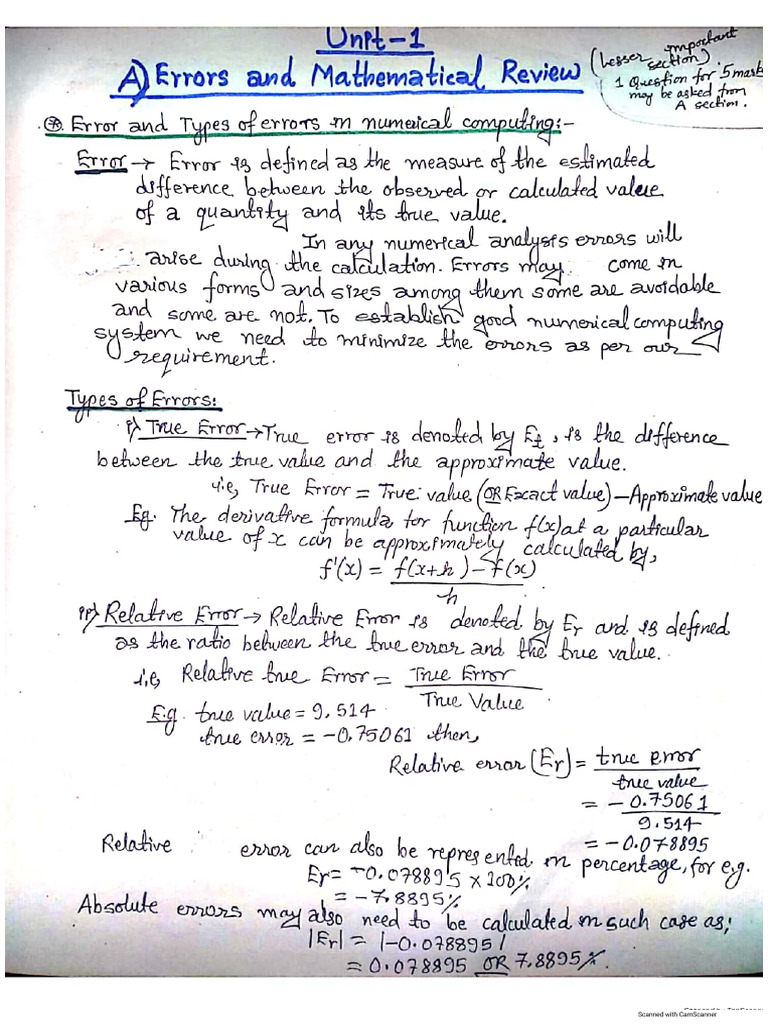 Unit-1
A) Errors and Mathematical Review
(Lesser important section).
1 Question for 5 mark
may be asked from
A section.
⊛. Error and Types of errors in numerical computing:-
Error → Error is defined as the measure of the estimated
difference between the observed or calculated value
of a quantity and its true value.
In any numerical analysis errors will
arise during the calculation. Errors may come in
various forms and sizes among them some are avoidable
and some are not. To establish good numerical computing
system we need to minimize the errors as per our
requirement.
Types of Errors:
i) True Error → True error is denoted by Et, is the difference
between the true value and the approximate value.
i.e, True Error = True value (OR Exact value) – Approximate value
Eg. The derivative formula for function f(x) at a particular
value of x can be approximately calculated by,
f'(x) = f(x+h) – f(x)
h
ii) Relative Error → Relative Error is denoted by Er and is defined
as the ratio between the true error and the true value.
i.e, Relative true Error = True Error
True Value
E.g. true value = 9.514
true error = -0.75061 then,
Relative error (Er) = true error
true value
= -0.75061
9.514
= -0.078895
Relative error can also be represented in percentage, for e.g.
Er = -0.078895 × 100%
= -7.8895%
Absolute errors may also need to be calculated in such case as;
|Er| = |-0.078895|
= 0.078895 OR 7.8895%.
Scanned with CamScanner